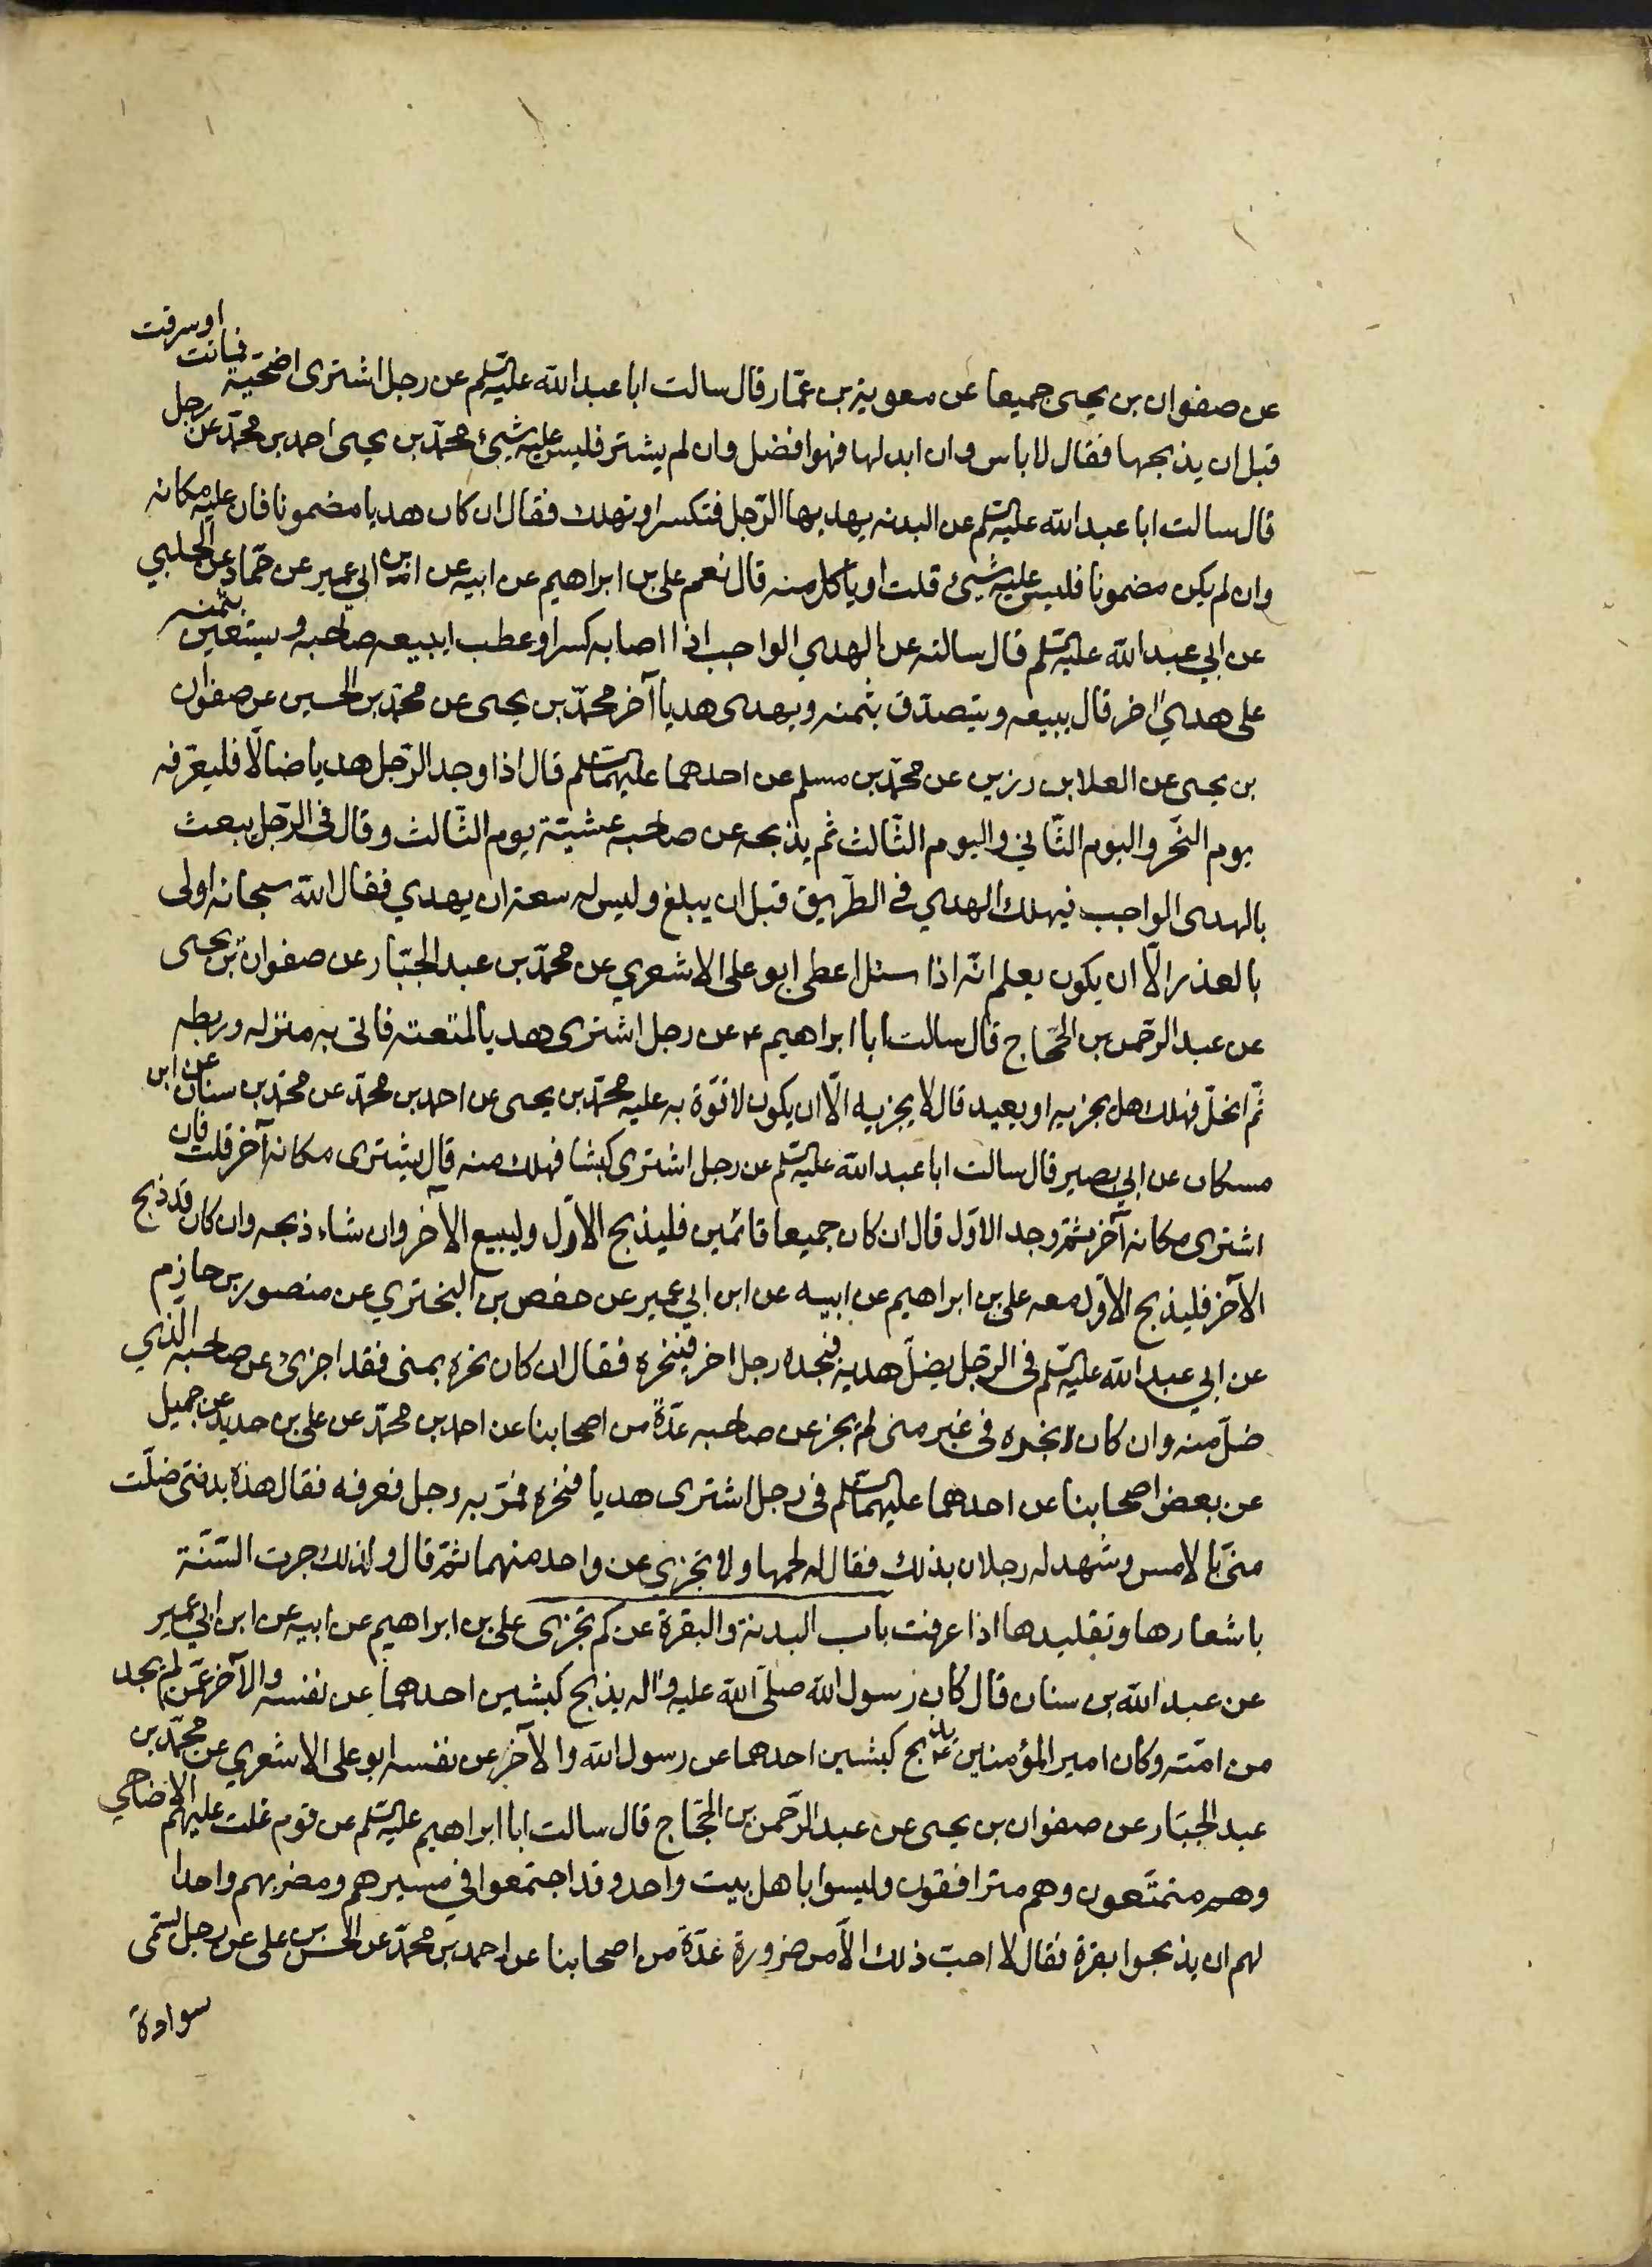 عن صفوان بن يحيى جميعا عن معوية بن عمّار قال سالت ابا عبدالله عليه السلم عن رجل اشترى اضحيّة فماتت او سرقت
قبل ان يذبحها فقال لا باس وان ابدلها فهو افضل وان لم يشتر فليس عليه شيئ محمّد بن يحيى احمد بن محمّد عن رجل
قال سالت ابا عبدالله عليه السلم عن البدنه يهديها الرّجل فتكسر او تهلك فقال ان كان هديا مضمونا فان عليه مكانه
وان لم يكن مضمونا فليس عليه شيئ قلت او ياكل منه قال نعم على بن ابراهيم عن ابيه عن ابن ابي عمير عن حمّاد عن الحلبي
عن ابي عبدالله عليه السلم قال سالته عن الهدي الواجب اذا اصابه كسر او عطب ايبيعه صاحبه ويستعين بثمنه
على هدي اخر قال يبيعه ويتصدّق بثمنه ويهدى هديا آخر محمّد بن يحيى عن محمّد بن الحسين عن صفوان
بن يحيى عن العلا بن رزين عن محمّد بن مسلم عن احدهما عليهما السلم قال اذا وجد الرّجل هديا ضالّا فليعرّفه
يوم النّحر واليوم الثّاني واليوم الثّالث ثم يذبحه عن صاحبه عشيّة يوم الثّالث وقال في الرّجل يبعث
بالهدى الواجب فيهلك الهدي في الطّريق قبل ان يبلغ وليس له سعة ان يهدي فقال الله سبحانه اولى
بالعذر الّا ان يكون يعلم انّه اذا سئل اعطى ابو على الاشعري عن محمّد بن عبد الجبّار عن صفوان بن يحيى
عن عبد الرّحمن بن الحجّاج قال سالت ابا ابراهيم ع عن رجل اشترى هديا لمتعته فاتى به منزله وربطه
ثمّ انحلّ فهلك هل يجزيه او يعيد قال لا يجزيه الّا ان يكون لا قوّة به عليه محمّد بن يحيى عن احمد بن محمّد عن محمّد بن سنان عن ابن
مسكان عن ابي بصير قال سالت ابا عبدالله عليه السلم عن رجل اشترى كبشا فهلك منه قال يشترى مكانه آخر قلت فان
اشترى مكانه آخر ثمّ وجد الاوّل قال ان كان جميعا قائمين فليذبح الاوّل وليبيع الاخر وان شاء ذبحه وان كان قد ذبح
الآخر فليذبح الاوّل معه على بن ابراهيم عن ابيه عن ابن ابي عمير عن حفص بن البختري عن منصور بن حازم
عن ابي عبدالله عليه السلم في الرّجل يضلّ هديه فيجده رجل اخر فينحره فقال ان كان نحره بمنى فقد اجزئ عن صاحبه الّذي
ضلّ منه وان كان نحره في غير منى لم يجز عن صاحبه عدّة من اصحابنا عن احمد بن محمّد عن على بن حديد عن جميل
عن بعض اصحابنا عن احدهما عليهما السلم في رجل اشترى هديا فنحره فمرّ به رجل فعرفه فقال هذه بدنتى ضلّت
منّى بالامس وشهد له رجلان بذلك فقال له لحمها ولا تجزي عن واحد منهما ثمّ قال ولذلك جرت السّنّة
باشعارها وتقليدها اذا عرفت باب البدنة والبقرة عن كم تجزى على بن ابراهيم عن ابيه عن ابن ابي عمير
عن عبدالله بن سنان قال كان رسول الله صلّى الله عليه واله يذبح كبشين احدهما عن نفسه والآخر عمّن لم يجد
من امّته وكان امير المؤمنين ع يذبح كبشين احدهما عن رسول الله والآخر عن نفسه ابو على الاشعري عن محمّد بن
عبد الجبّار عن صفوان بن يحيى عن عبد الرّحمن بن الحجّاج قال سالت ابا ابراهيم عليه السلم عن قوم غلت عليهم الاضاحي
وهم متمتّعون وهم مترافقون وليسوا باهل بيت واحد وقد اجتمعوا في مسيرهم ومضربهم واحدا
لهم ان يذبحوا بقرة فقال لا احبّ ذلك الّا من ضرورة عدّة من اصحابنا عن احمد بن محمّد عن الحسن بن على عن رجل يسمّى
سوادة